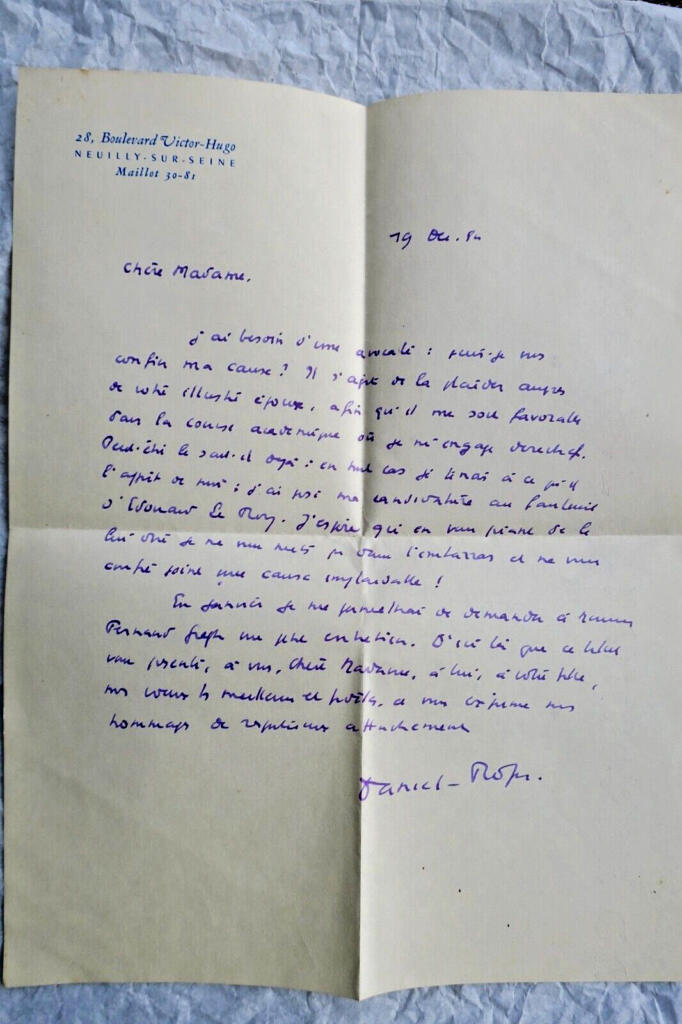 28, Boulevard Victor-Hugo
NEUILLY-SUR-SEINE
Maillot 30-81
19 Dec. 54
Chère Madame,
j'ai besoin d'une avocate : puis-je vous
confier ma cause ? Il s'agit de la plaider auprès
de votre illustre époux, afin qu'il me soit favorable
dans la course académique où je m'engage derechef.
Peut-être le sait-il déjà : en tout cas je tenais à ce qu'il
l'apprît de moi ; j'ai posé ma candidature au fauteuil
d'Edouard Le Roy. J'espère qu'en vous priant de le
lui dire je ne vous mets pas dans l'embarras et ne vous
confie point une cause implaidable !
En janvier je me permettrai de demander à
Fernand Gregh un entretien. D'ici là que ce billet
vous présente, à vous, chère Madame, à lui, à votre fille,
mes voeux les meilleurs et vous exprime mes
hommages de respectueux attachement
Daniel-Rops.